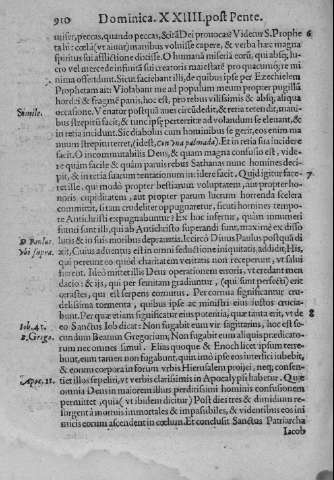 910 Dominica. XXIIII. post Pente.
uisser, peccas, quando peccas, & irã Dei prouocas? Videtur S. Prophe 6
ta hi: cœla( vt aiunt) manibus voluisse capere, & verba hæc magna
spiritus sui afflictione dixisse. O humanã miseriã eorũ, qui absq; lu
cro vel mercede infinitã sui creatoris maiestatẽ pro quacumq; re mi
nima offendunt. Sic vt faciebant illi, de quibus ipse per Ezechielem
Prophetam ait: Violabant me ad populum meum propter pugillũ
hordei & fragmẽ panis, hoc est, pro rebus vilissimis & absq; aliqua
Simile. occasione. Venator postquã aues circũdederit, & retia tetendit, mani-
bus strepitũ facit, & tunc ipsę perterritæ ad volandum se eleuant, &
in retia incidunt. Sic diabolus cum hominibus se gerit, eos enim ma
nuum strepitu terret, (idest, con vna palmada). Et in retia sua incidere
facit. O incommutabilis Deus, & quam magna confusio est, vide-
re quàm facile & quàm paruis rebus Sathanas nunc homines deci-
pit, & in retia suarum tentationum incidere facit. Quid igitur face- 7
ret ille, qui modò propter bestiarum voluptatem, aut propter ho-
noris cupiditatem, aut propter parum lucrum horrenda scelera
committit, si tam crudeliter oppugnaretur, sicuti homines tempo-
re Antichristi expugnabuntur? Ex hoc infertur, quàm innumeri
futuri sunt illi, qui ab Antichristo superandi sunt, maximè ex disso
D. Paulus. lutis & in suis moribus deprauatis. Iccircò Diuus Paulus postquã di
Vbi supra. xit, Cuius aduentus est in omni seductione iniquitatis, addidit, His,
qui pereunt eo quòd charitatem veritatis non receperunt, vt salui
fierent. Ideò mittet illis Deus operationem erroris, vt credant men
dacio: & ijs, qui per semitam gradiuntur, (qui sunt perfecti) erit
orastes, qui est serpens cornutus. Per cornua significantur cru-
delissima tormenta, quibus ipse ac ministri eius iustos crucia-
bunt. Per quæ etiam significatur eius potentia, quæ tanta erit, vt de 8
Iob. 41. eo Sanctus Iob dicat: Non fugabit eum vir sagittarius, hoc est se-
D. Grego. cundum Beatum Gregorium, Non fugabit eum aliquis prædicato-
rum nec omnes simul. Elias quoque & Enoch licet ipsum terre-
bunt, eum tamen non fugabunt, quin imò ipse eos interfici iubebit,
& eorum corpora in forum vrbis Hierusalem proijci, neq; consen-
Apoc. 11. tiet illos sepeliri, vt verbis clarissimis in Apocalypsi habetur. Quæ
omnia Deus in maiorem illius perditissimi hominis confusionem
permittet, quia( vt ibidem dicitur) Post dies tres & dimidium re-
surgent à mortuis immortales & impassibiles, & videntibus eos ini
micis eorum ascendent in cœlum. Et conclusit Sanctus Patriarcha
Iacob